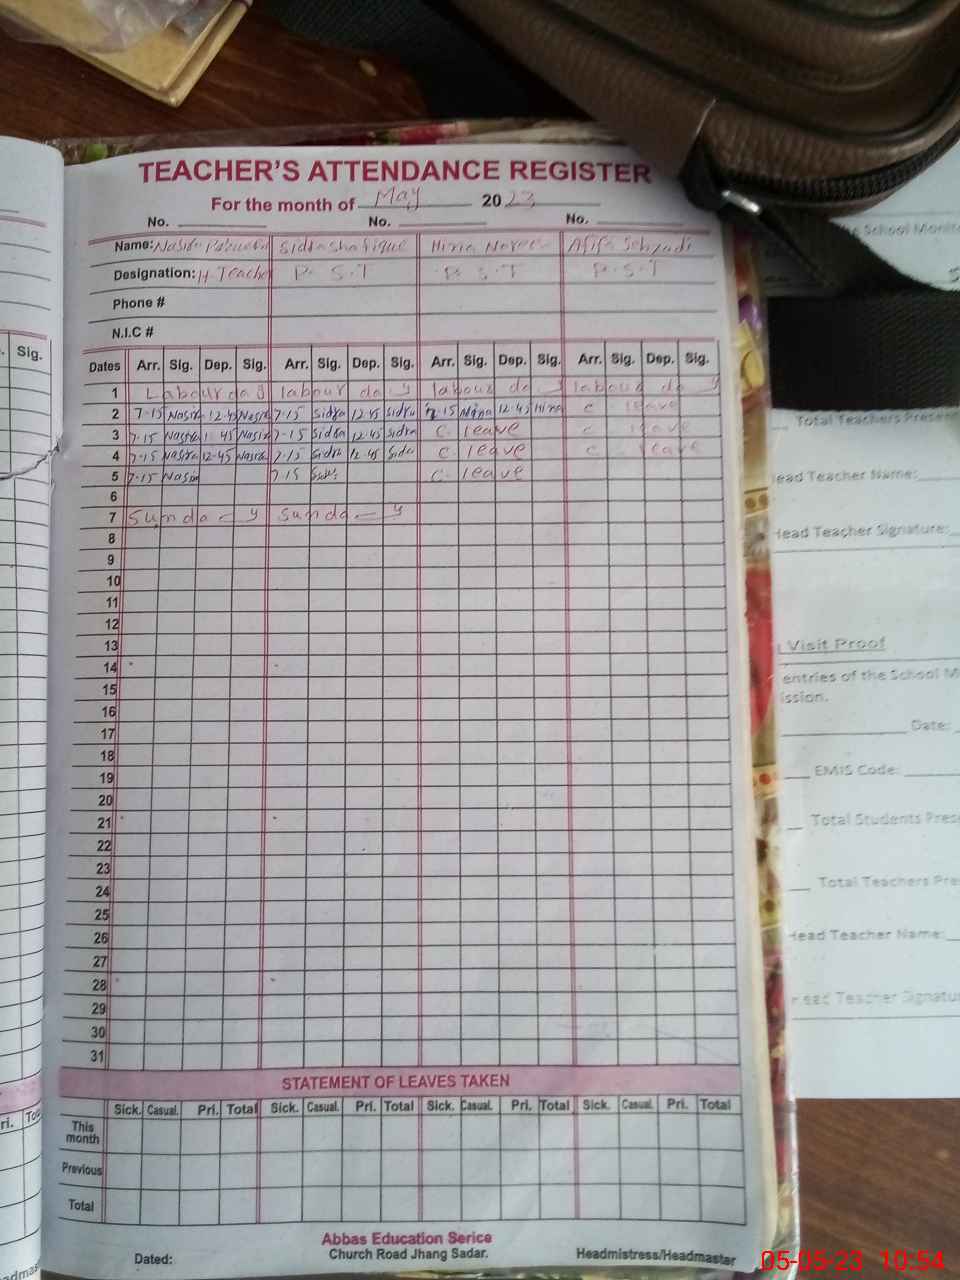 TEACHER'S ATTENDANCE REGISTER
For the month of May 2023
No. No. No.
Name: Sidra shafique Hina Afifa
Designation: H.Teacher P.S.T P.S.T P.S.T
Phone #
N.I.C #
Sig.
Dates Arr. Sig. Dep. Sig. Arr. Sig. Dep. Sig. Arr. Sig. Dep. Sig. Arr. Sig. Dep. Sig.
1 Labour day labour day labour day labour day
2 7-15 Nasira 12-45 Nasira 7-15 Sidra 12-45 Sidra 7-15 Hina 12-45 Hina c leave
3 7-15 Nasira 11-45 Nasira 7-15 Sidra 12-45 Sidra C. leave c leave
4 7-15 Nasira 12-45 Nasira 7-15 Sidra 12-45 Sidra C. leave c leave
5 7-15 Nasira 7-15 C. leave
6
7 Sunda-y Sunda-y
8
9
10
11
12
13
14
15
16
17
18
19
20
21
22
23
24
25
26
27
28
29
30
31
STATEMENT OF LEAVES TAKEN
Sick. Casual. Pri. Total Sick. Casual. Pri. Total Sick. Casual. Pri. Total Sick. Casual. Pri. Total
This month
Previous
Total
Abbas Education Serice
Church Road Jhang Sadar.
Dated: Headmistress/Headmaster
School
Total Teachers Present
Head Teacher Name:
Head Teacher Signature:
Visit Proof
entries of the School M
ission.
Date:
EMIS Code:
Total Students Pres
Total Teachers Pre
Head Teacher Name:
Head Teacher Signatu
05-05-23 10:54